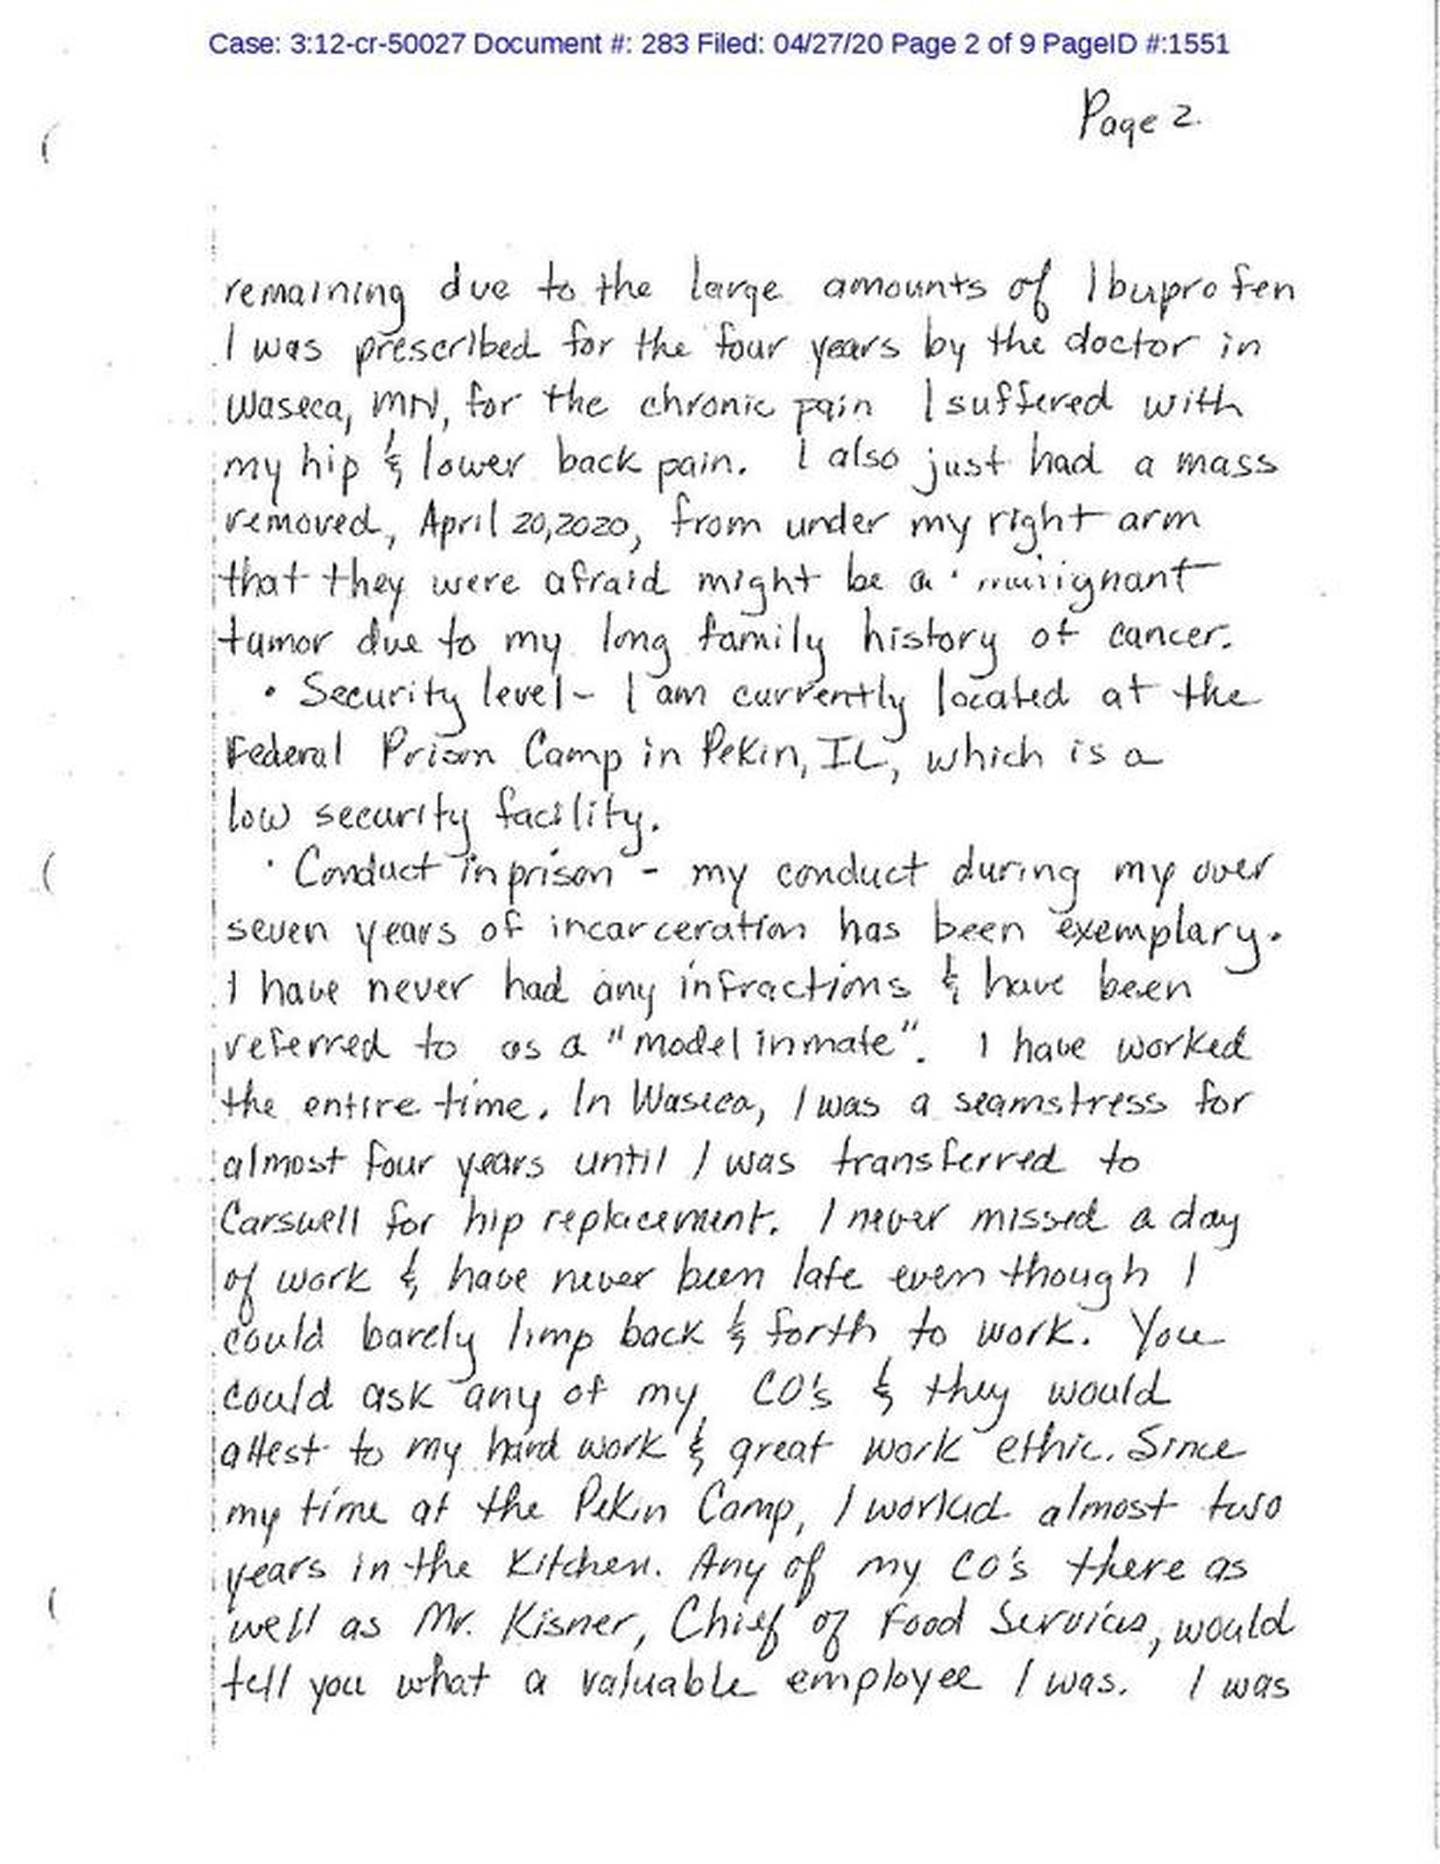 Case: 3:12-cr-50027 Document #: 283 Filed: 04/27/20 Page 2 of 9 PageID #:1551
Page 2.
remaining due to the large amounts of Ibuprofen
I was prescribed for the four years by the doctor in
Waseca, MN, for the chronic pain I suffered with
my hip & lower back pain. I also just had a mass
removed, April 20,2020, from under my right arm
that they were afraid might be a malignant
tumor due to my long family history of cancer.
• Security level - I am currently located at the
Federal Prison Camp in Pekin, IL, which is a
low security facility.
• Conduct in prison - my conduct during my over
seven years of incarceration has been exemplary.
I have never had any infractions & have been
referred to as a "model inmate". I have worked
the entire time. In Waseca, I was a seamstress for
almost four years until I was transferred to
Carswell for hip replacement. I never missed a day
of work & have never been late even though I
could barely limp back & forth to work. You
could ask any of my CO's & they would
attest to my hard work & great work ethic. Since
my time at the Pekin Camp, I worked almost two
years in the Kitchen. Any of my CO's there as
well as Mr. Kisner, Chief of Food Services, would
tell you what a valuable employee I was. I was